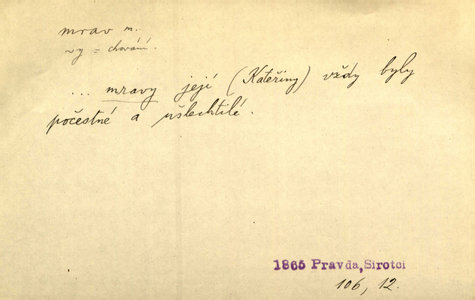 mrav m.
~y = chování.
... mravy její (Kateřiny) vždy byly
počestné a ušlechtilé.
1865 Pravda, Sirotci
106, 12.